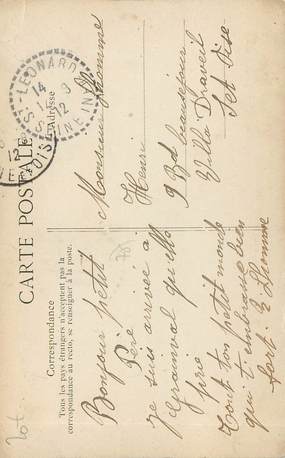 CARTE POSTALE
Correspondance
Tous les pays étrangers n'acceptent pas la
correspondance au recto, se renseigner à la poste.
Adresse
ST LEONARD
14
12
SEINE INF
OISE
Bonjour petit
Père
je suis arrivée a
Grainval qu'elle
prie
tout ton petit monde
qui t'embrasse bien
fort. E Lhomme
Monsieur Lhomme
Henri
9 Bd beauséjour
Villa Draveil
Set Oise
Tot.